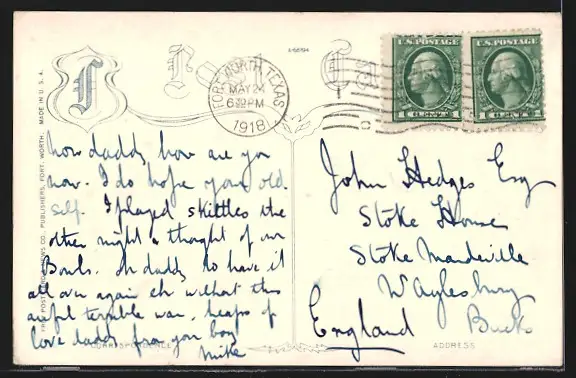 A-68194
U.S. POSTAGE
U.S. POSTAGE
1 CENTS 1
1 CENTS 1
FORT WORTH, TEXAS
MAY 24
PM
1918
MADE IN U.S.A.
PUBLISHERS, FORT WORTH.
Now daddy how are you
now. I do hope your old
self. I played skittles the
other night & thought of our
Bowls. Oh daddy to have it
all over again eh without this
awful terrible war. heaps of
love daddy from your boy
Mike
John Hedges Esq
Stoke House
Stoke Mandeville
W Aylesbury
Bucks
England
CORRESPONDENCE
ADDRESS